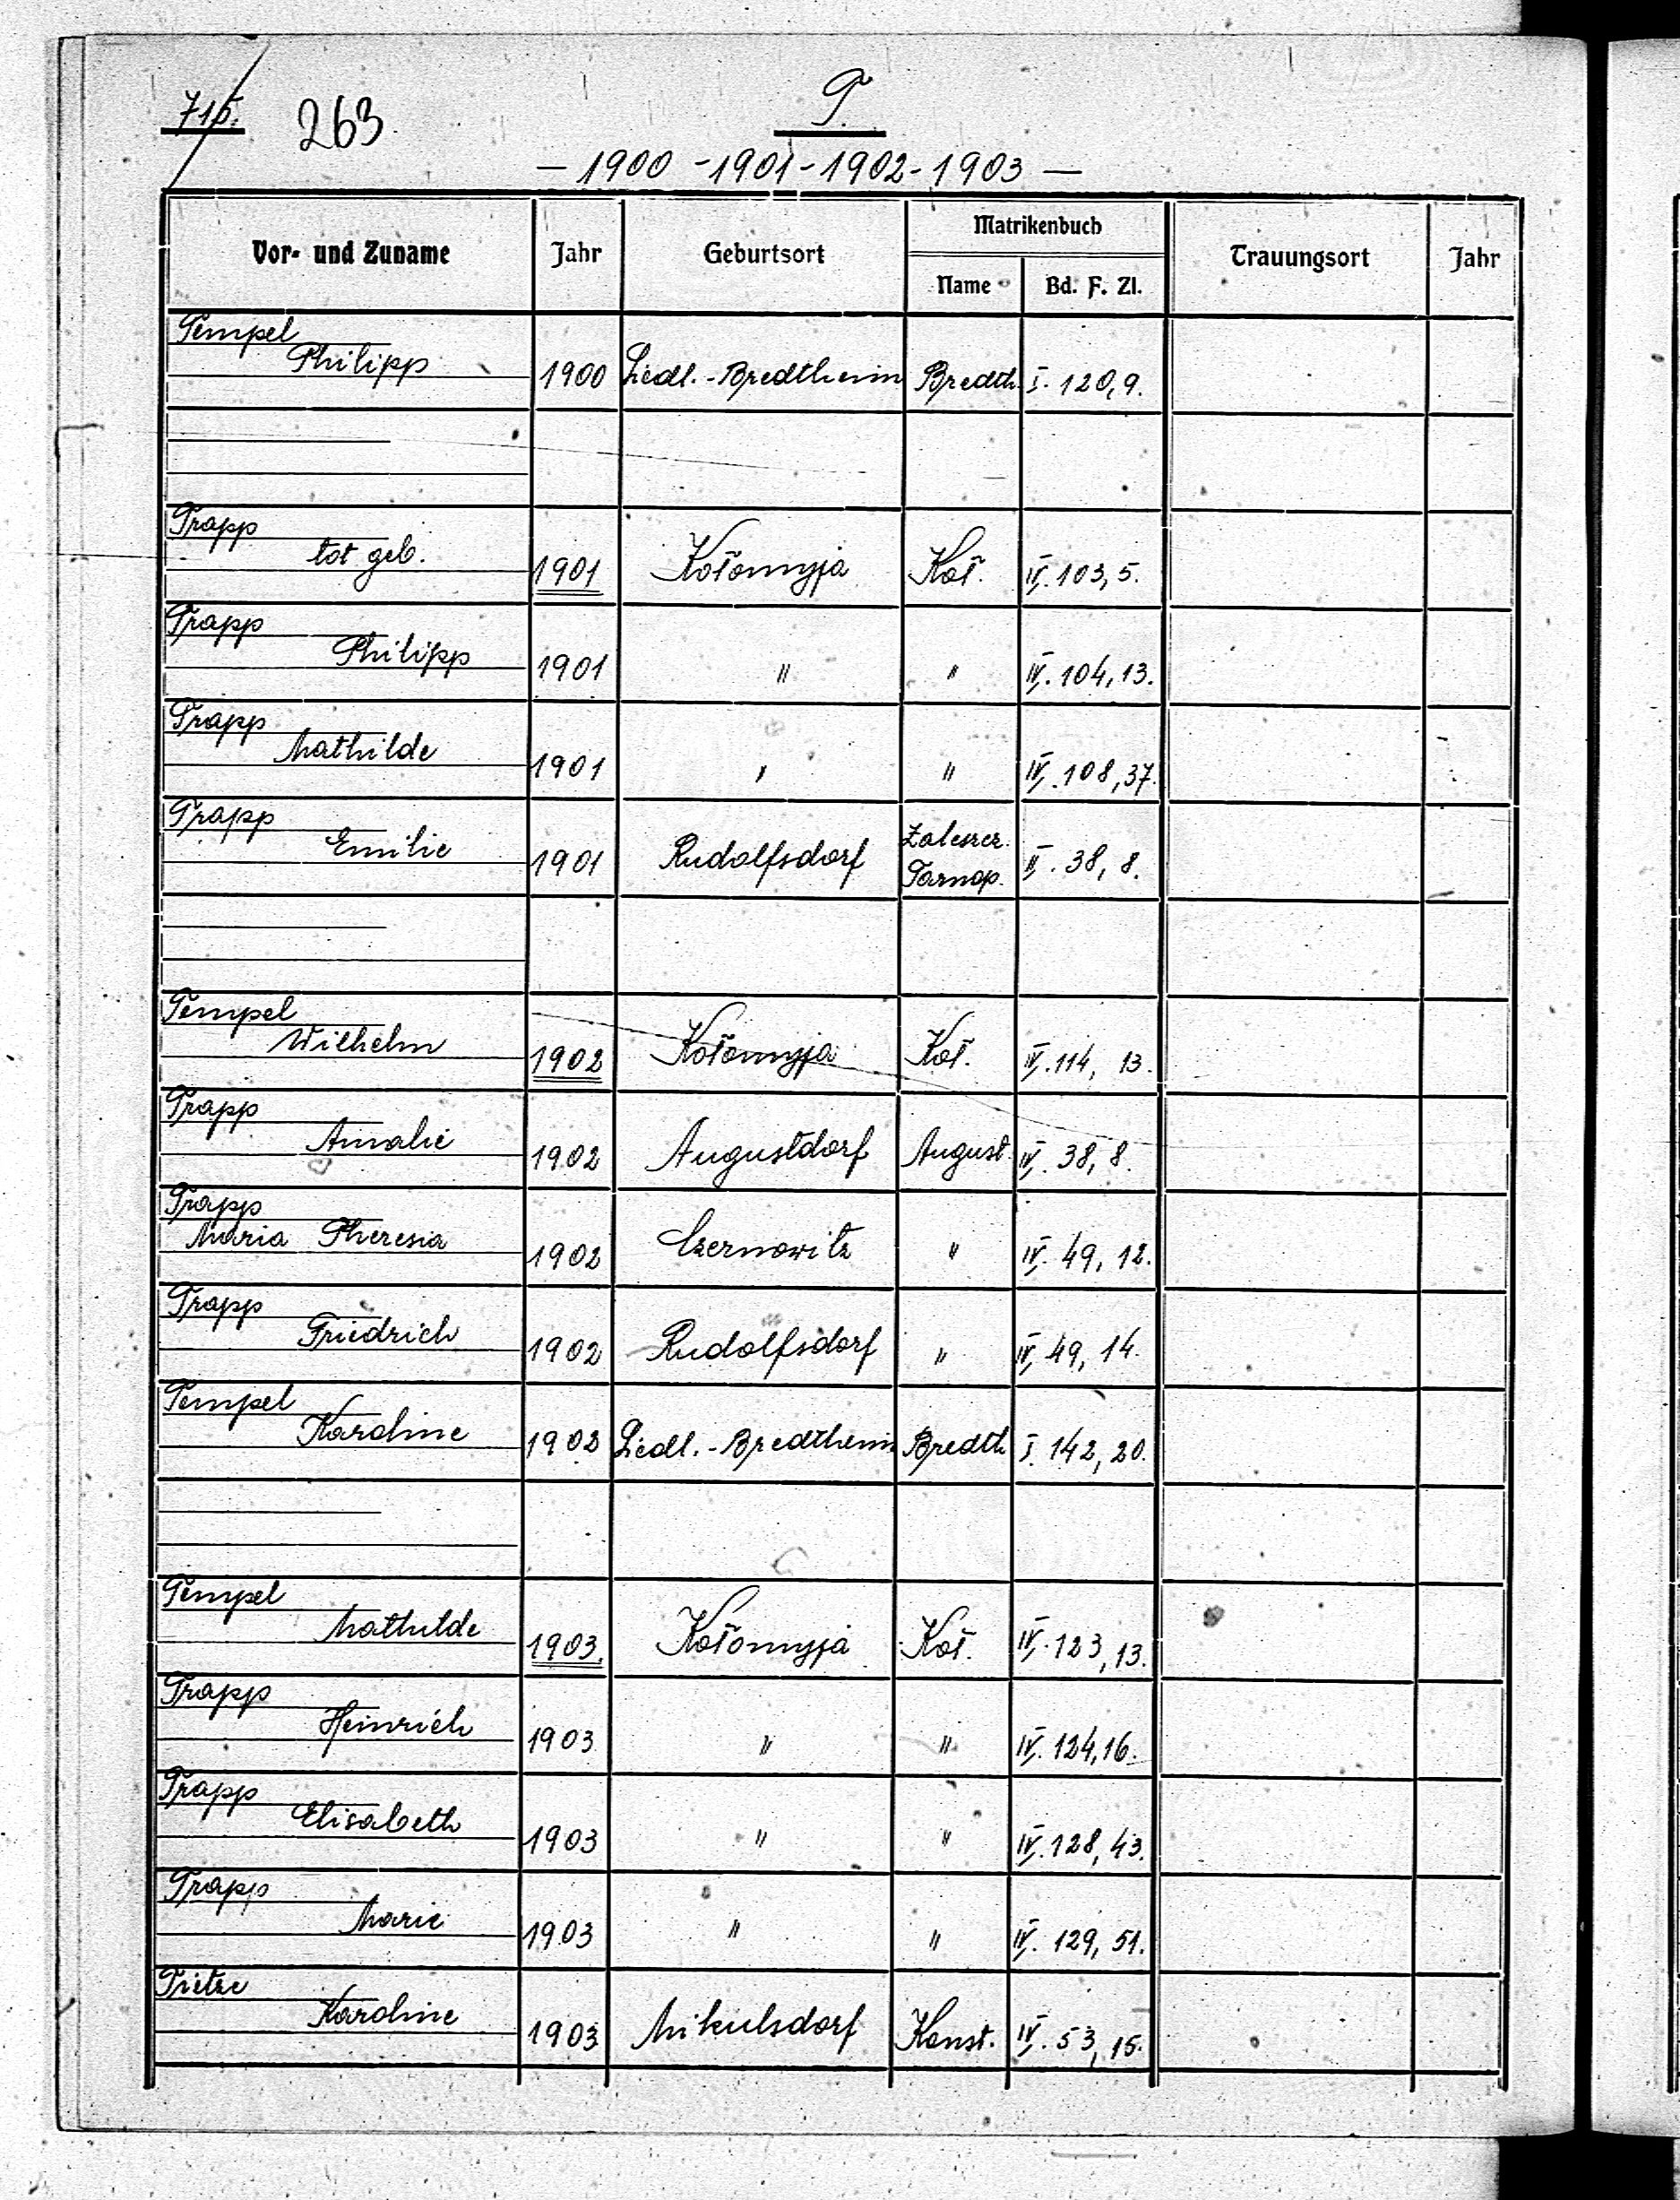 715. 263 T.
— 1900 - 1901 - 1902 - 1903 —
Vor- und Zuname Jahr Geburtsort Matrikenbuch Trauungsort Jahr
Name Bd. F. Zl.
Tempel
Philipp 1900 Siedl.-Bredtheim Bredth. I. 120, 9.
Trapp
tot geb. 1901 Kołomyja Koł. IV. 103, 5.
Trapp
Philipp 1901 " " IV. 104, 13.
Trapp
Mathilde 1901 " " IV. 108, 37.
Trapp
Emilie 1901 Rudolfsdorf Zaleszcz. Tarnop. II. 38, 8.
Tempel
Wilhelm 1902 Kołomyja Koł. IV. 114, 13.
Trapp
Amalie 1902 Augustdorf August. IV. 38, 8.
Trapp
Maria Theresia 1902 Czernowitz " IV. 49, 12.
Trapp
Friedrich 1902 Rudolfsdorf " IV. 49, 14.
Tempel
Karoline 1902 Siedl.-Bredtheim Bredth I. 142, 20.
Tempel
Mathilde 1903. Kołomyja Koł. IV. 123, 13.
Trapp
Heinrich 1903 " " IV. 124, 16.
Trapp
Elisabeth 1903 " " IV. 128, 43.
Trapp
Marie 1903 " " IV. 129, 51.
Tietze
Karoline 1903 Mikulsdorf Konst. IV. 53, 15.